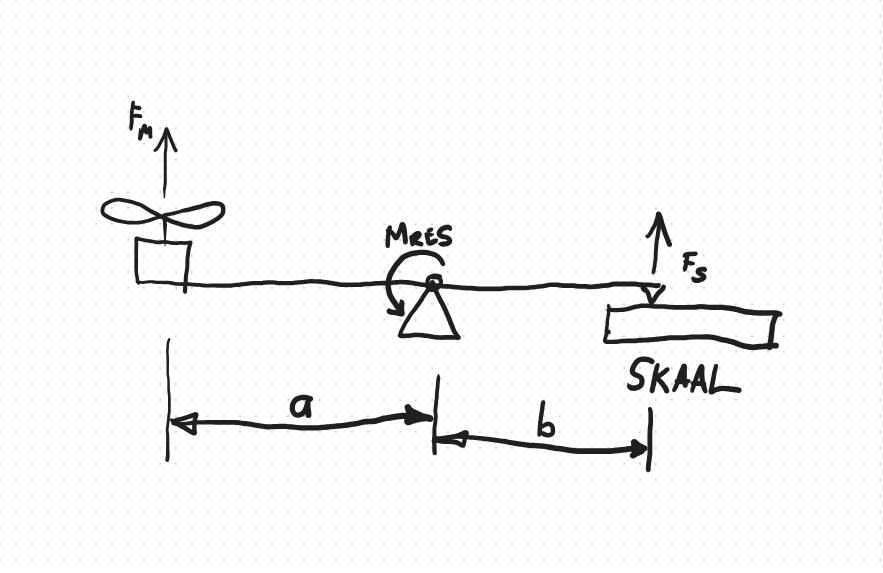 FM
MRES
FS
SKAAL
a
b